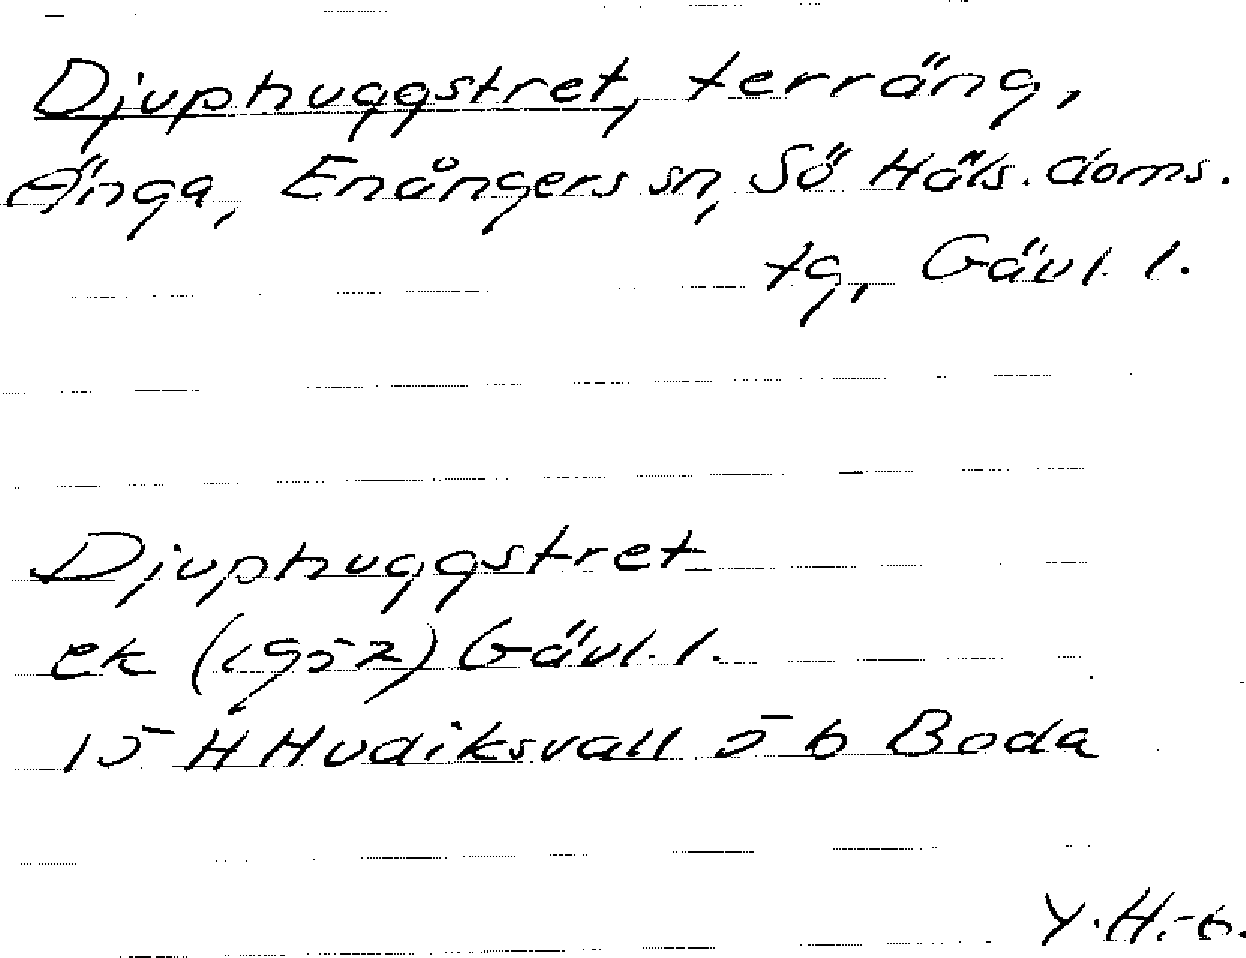 Djuphuggstret, terräng,
Änga, Enångers sn, Sö Häls. doms.
tg, Gävl. l.
Djuphuggstret
ek (1952) Gävl. l.
15 H Hudiksvall 5 b Boda
Y. H.-b.